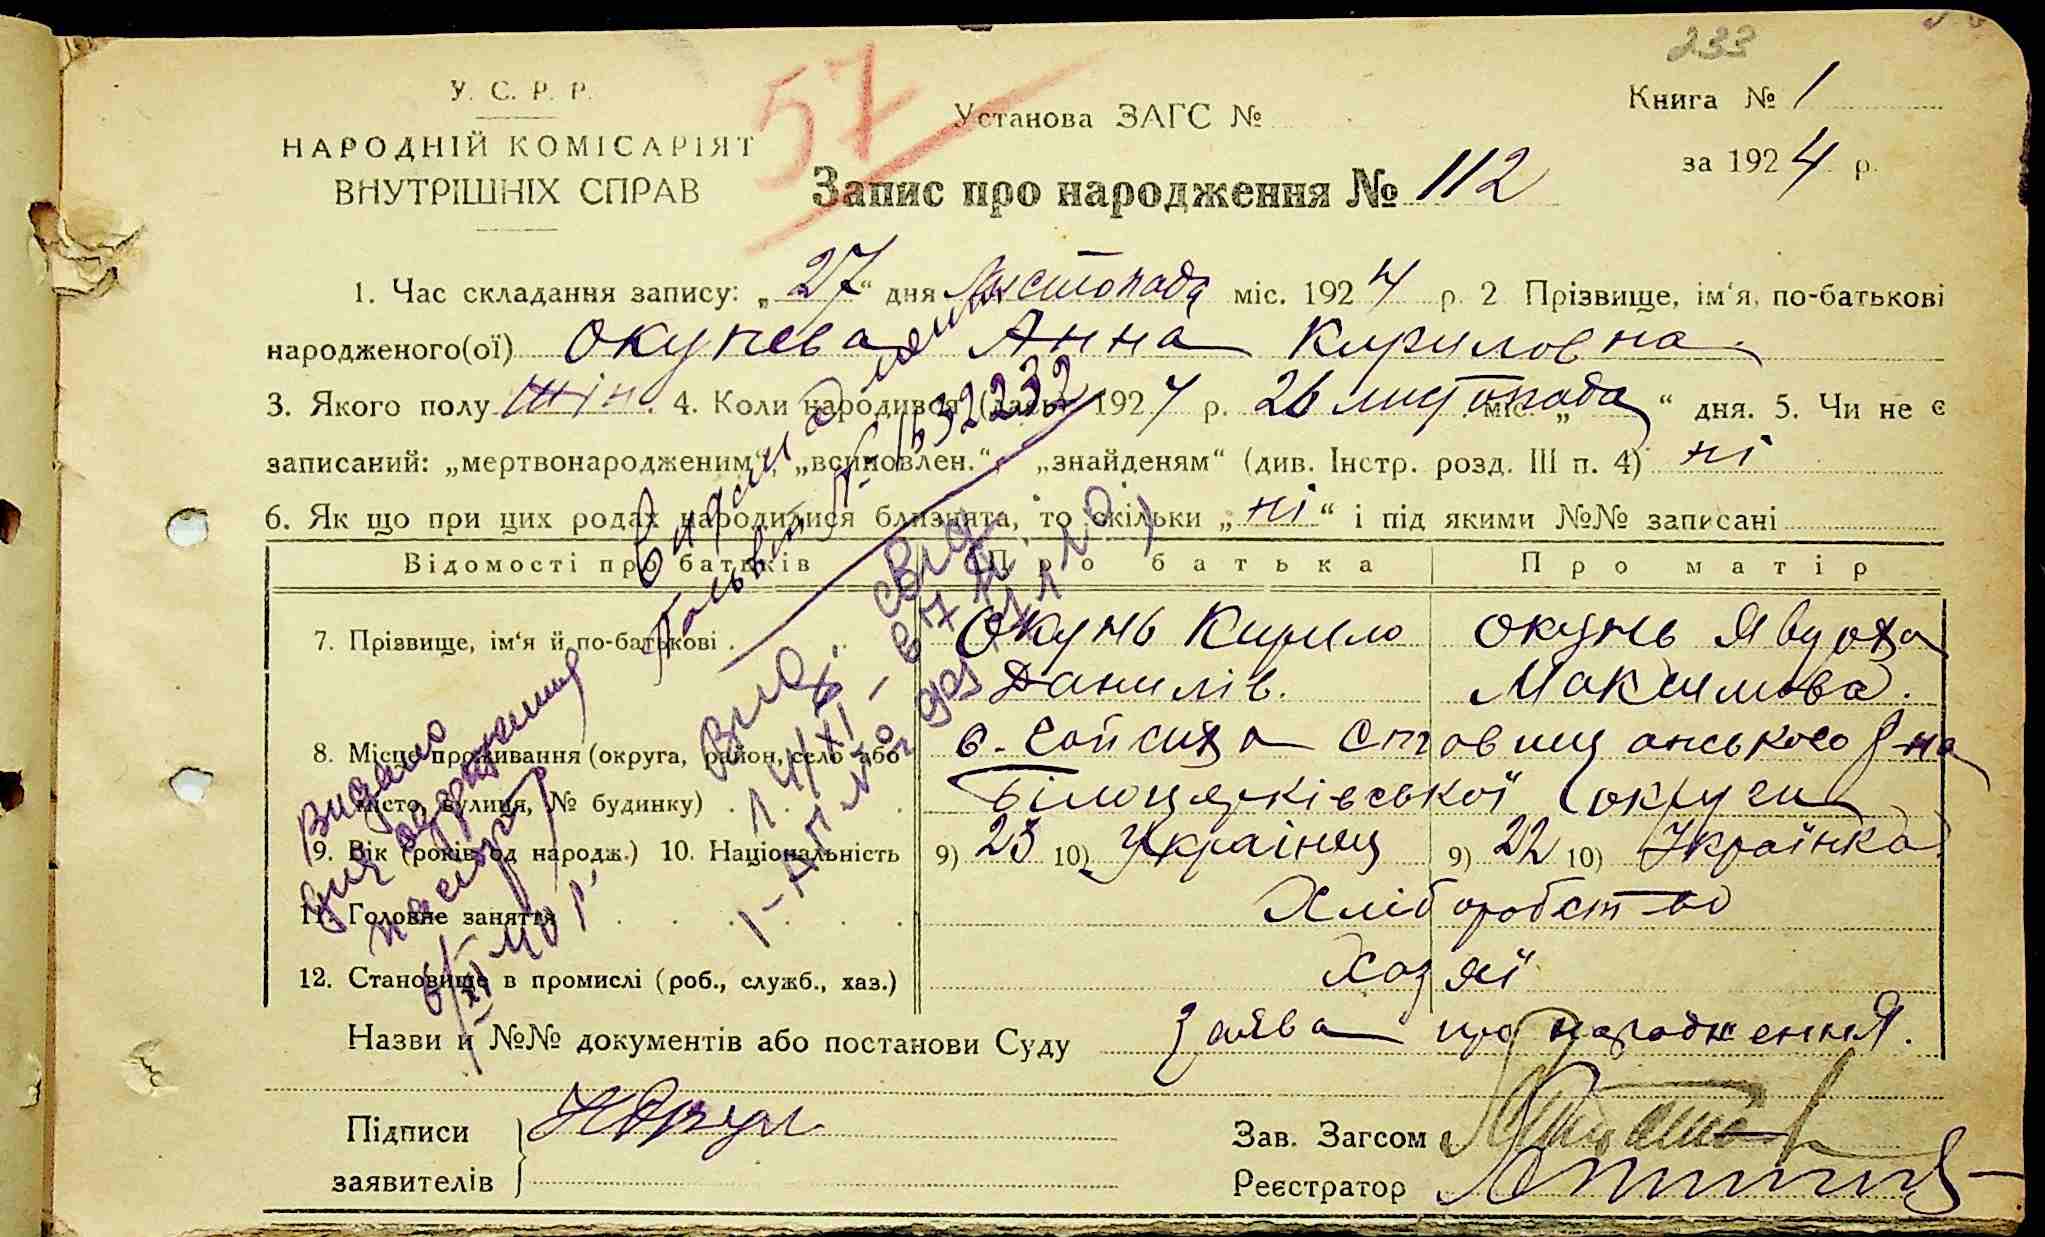 233
У. С. Р. Р.
НАРОДНІЙ КОМІСАРІЯТ
ВНУТРІШНІХ СПРАВ
57
Установа ЗАГС №
Книга № 1
за 1924 р.
Запис про народження № 112
1. Час складання запису: „27“ дня листопада міс. 1924 р. 2 Прізвище, ім'я, по-батькові
народженого(ої) Окунева Анна Кириловна
3. Якого полу жін. 4. Коли народився (лась) 1924 р. 26 листопада міс. „ “ дня. 5. Чи не є
записаний: „мертвонародженим“, „всиновлен.“, „знайденям“ (див. Інстр. розд. III п. 4) ні
6. Як що при цих родах народилися близнята, то скільки „ні“ і під якими №№ записані
Відомості про батьків Про батька Про матір
7. Прізвище, ім'я й по-батькові . Окунь Кирило Окунь Явдоха
Данилів. Максимова.
8. Місце проживання (округа, район, село або с. Станишанського р-на
місто, вулиця, № будинку) . Білоцерківської округи
9. Вік (років од народж.) 10. Національність 9) 23 10) Українец 9) 22 10) Українка
11. Головне заняття Хліборобство
12. Становище в промислі (роб., служб., хаз.) Хазяї
Назви й №№ документів або постанови Суду Заява про народження.
Підписи
заявителів
Зав. Загсом
Реєстратор
Видано
для одержання
паспорту
6/XI 40 р.
1532232
14/XI